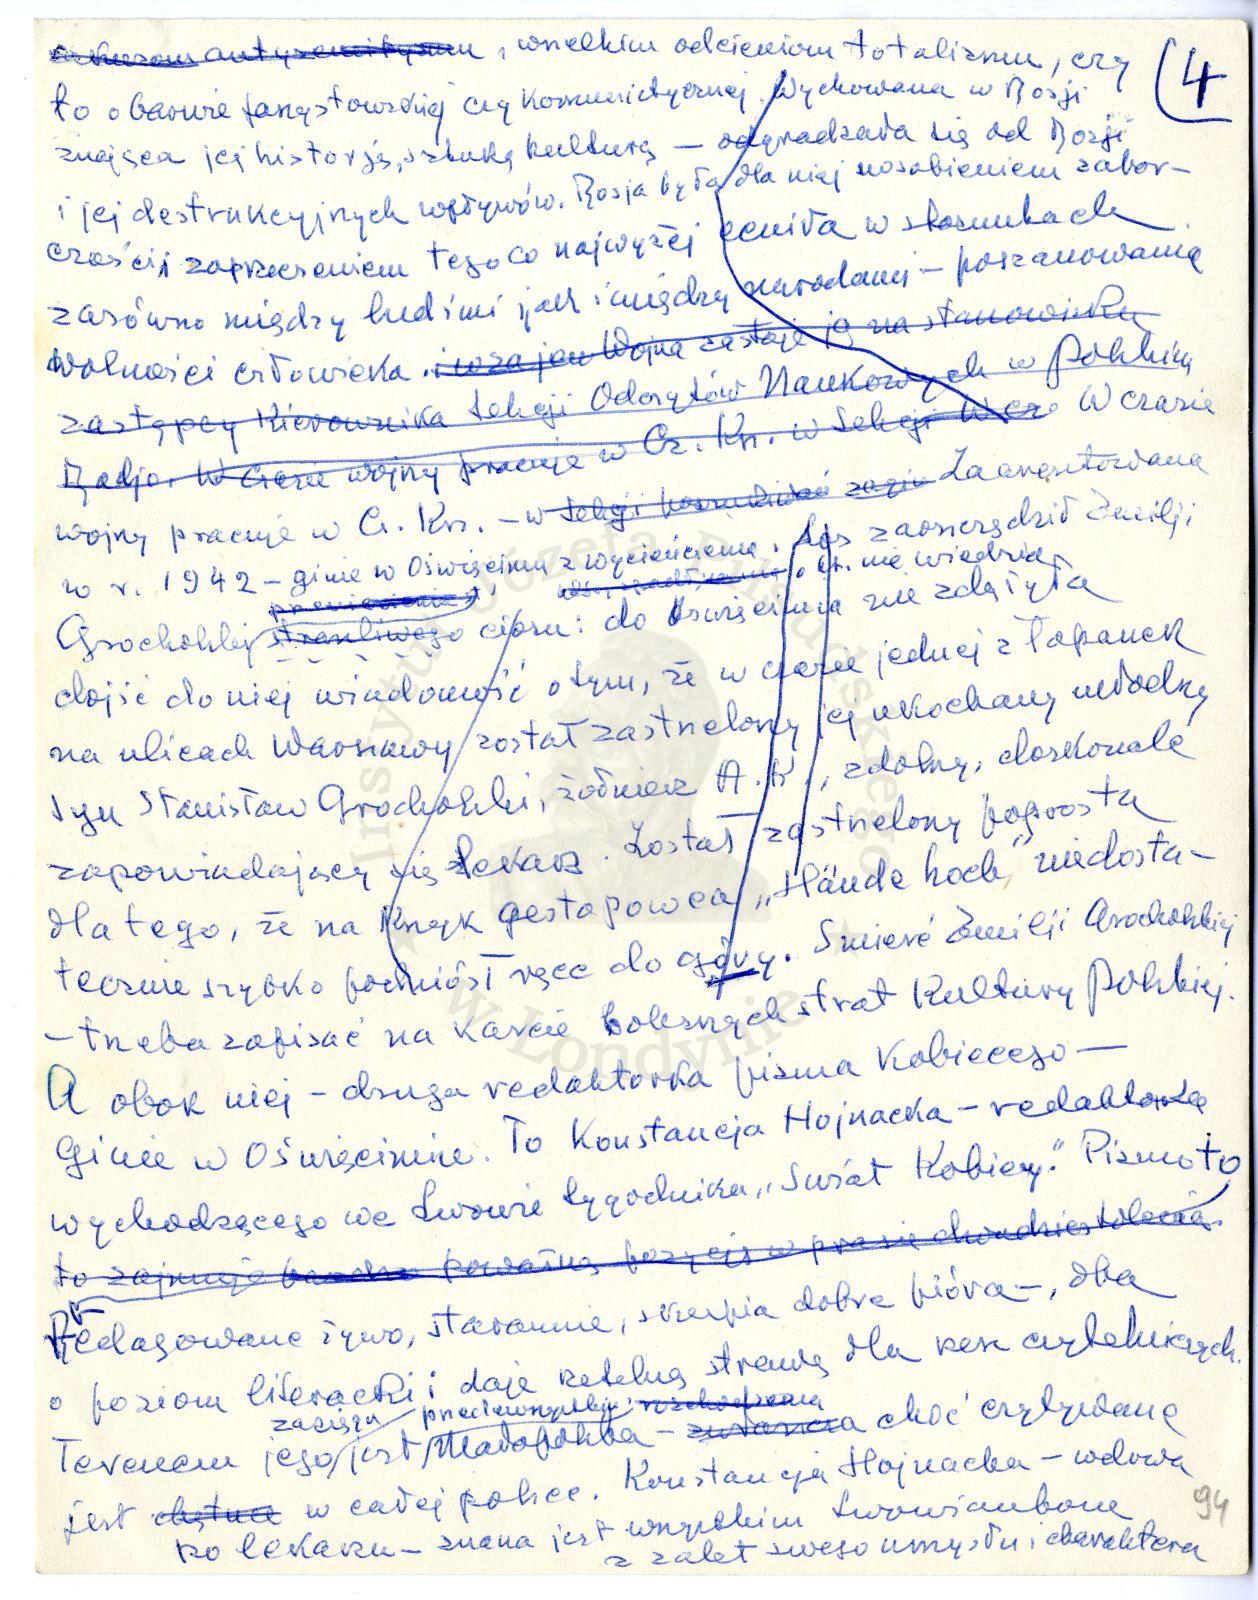 antysemityzmu, wszelkim odcieniom totalizmu, czy (4
to o barwie faszystowskiej czy komunistycznej. Wychowana w Rosji
znająca jej historję, sztukę kulturę — odgradzała się od Rosji
i jej destrukcyjnych wpływów. Rosja była dla niej uosobieniem zabor-
czości i zaprzeczeniem tego co najwyżej ceniła w stosunkach
zarówno między ludźmi jak i między narodami — poszanowanie
wolności człowieka. Wojna zastaje ją na stanowisku
zastępcy Kierownika Sekcji Odczytów Naukowych w Polskim
Radjo. W czasie wojny pracuje w Cz. Krz. w Sekcji W czasie
wojny pracuje w Cz. Krz. — w Sekcji Zaaresztowana
w r. 1942 — ginie w Oświęcimiu z wycieńczenia. Los zaoszczędził Emilji
nie wiedziała
Grocholskiej straszliwego ciosu: do Oświęcimia nie zdążyła
dojść do niej wiadomość o tym, że w czasie jednej z łapanek
na ulicach Warszawy został zastrzelony jej ukochany młodszy
syn Stanisław Grocholski, żołnierz A.K., zdolny, doskonale
zapowiadający się lekarz. Został zastrzelony poprostu
dlatego, że na krzyk gestapowca „Hände hoch” niedosta-
tecznie szybko podniósł ręce do góry. Śmierć Emilji Grocholskiej
— trzeba zapisać na karcie bolesnych strat Kultury Polskiej.
A obok niej — druga redaktorka pisma Kobiecego —
ginie w Oświęcimie. To Konstancja Hojnacka — redaktorka
wychodzącego we Lwowie tygodnika „Świat Kobiecy.” Pismo to
to zajmuje bardzo poważną pozycję w prasie dwudziestolecia.
Redagowane żywo, starannie, skupia dobre pióra —, dba
o poziom literacki i daje rzetelną strawę dla rzesz czytelniczych.
zasięgu przedewszystkim
Terenem jego jest Małopolska — choć czytywane
jest chętnie w całej Polsce. Konstancja Hojnacka — wdowa
po lekarzu — znana jest wszystkim Lwowianom
z zalet swego umysłu i charakteru
94
Instytut Józefa Piłsudskiego
w Londynie